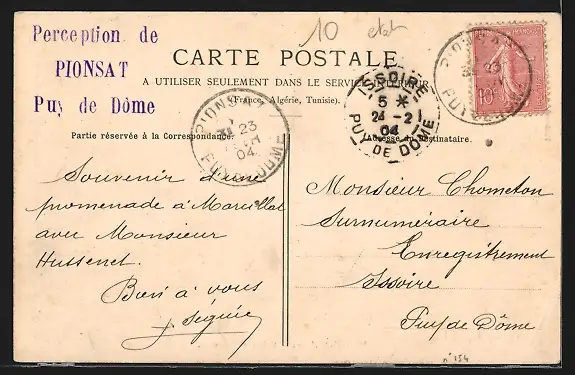 Perception de
PIONSAT
Puy de Dôme
10 etat
CARTE POSTALE
A UTILISER SEULEMENT DANS LE SERVICE INTERIEUR
(France, Algérie, Tunisie).
Partie réservée à la Correspondance.
Adresse du Destinataire.
PIONSAT
23
04
PUY DE DOME
ISSOIRE
5 *
24 - 2
04
PUY DE DÔME
PIONSAT
23
10c
Souvenir d'une
promenade à
avec Monsieur
Hussenet.
Bien à vous
Monsieur Chometon
Surnuméraire
Enregistrement
Issoire
Puy de Dôme
n° 154